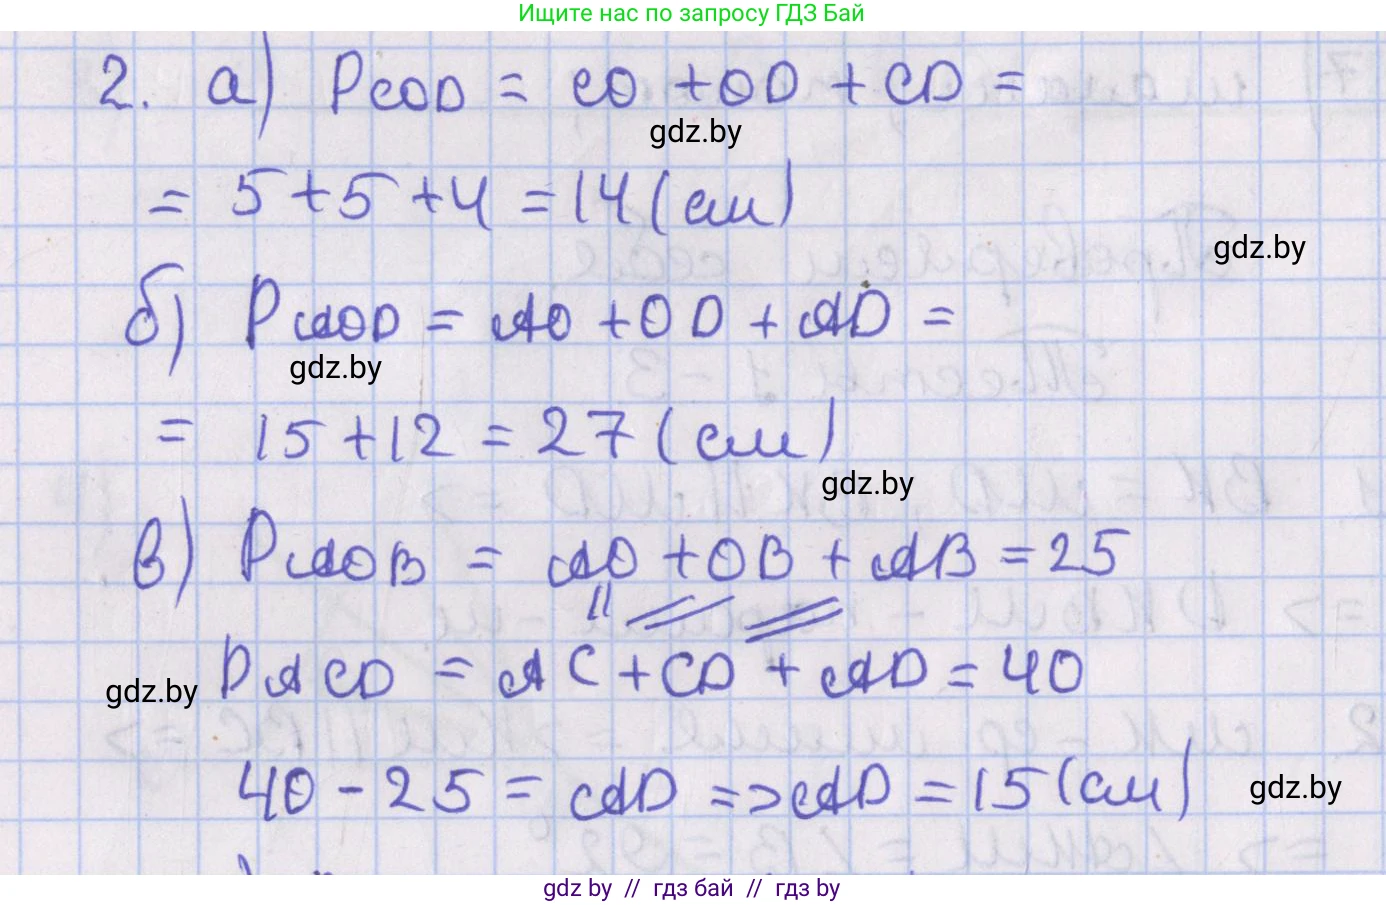 Ищите нас по запросу ГДЗ Бай
2. а) PCOD = CO + OD + CD =
gdz.by
= 5 + 5 + 4 = 14 (см)
gdz.by
б) PAOD = AO + OD + AD =
gdz.by
= 15 + 12 = 27 (см)
gdz.by
в) PAOB = AO + OB + AB = 25
PACD = AC + CD + AD = 40
gdz.by
40 - 25 = AD => AD = 15 (см)
gdz.by
gdz by // гдз бай // гдз by